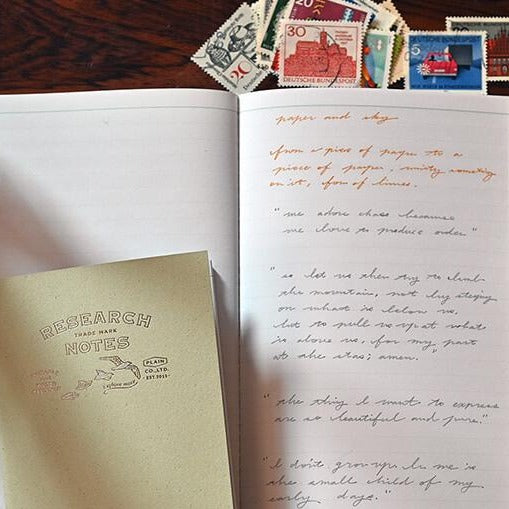 20
30
DEUTSCHE BUNDESPOST
20
5
DEUTSCHE BUNDESPOST
paper and sky
from a piece of paper to a
piece of paper, write something
on it, form of lines.
"we adore chaos because
we love to produce order"
"so let us then try to climb
the mountain, not by stepping
on what is below us,
but to pull us up at what
is above us, for my part
at the stars; amen."
"the thing I want to express
are so beautiful and pure."
"I don't grow up. In me is
the small child of my
early days."
RESEARCH
TRADE MARK
NOTES
PLAIN
CO., LTD.
EST. 2015